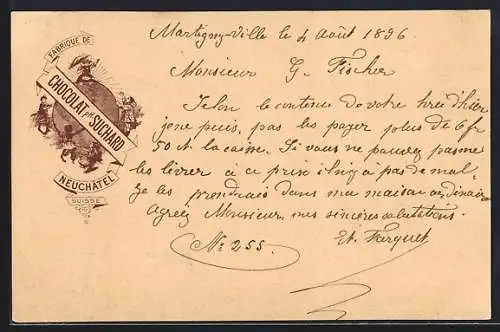 FABRIQUE DE
CHOCOLAT PH. SUCHARD
NEUCHATEL
SUISSE
Martigny-Ville le 4 Août 1896
Monsieur G. Fischer
Selon le contenu de votre hier
je ne puis, pas les payer plus de 6 fr
50 ct la caisse. Si vous ne pouvez pas me
les livrer à ce prix il n'y à pas de mal,
je les prendrais dans ma maison ordinaire
Agreez Monsieur mes sincères salutations.
No 255. Et. Farquet